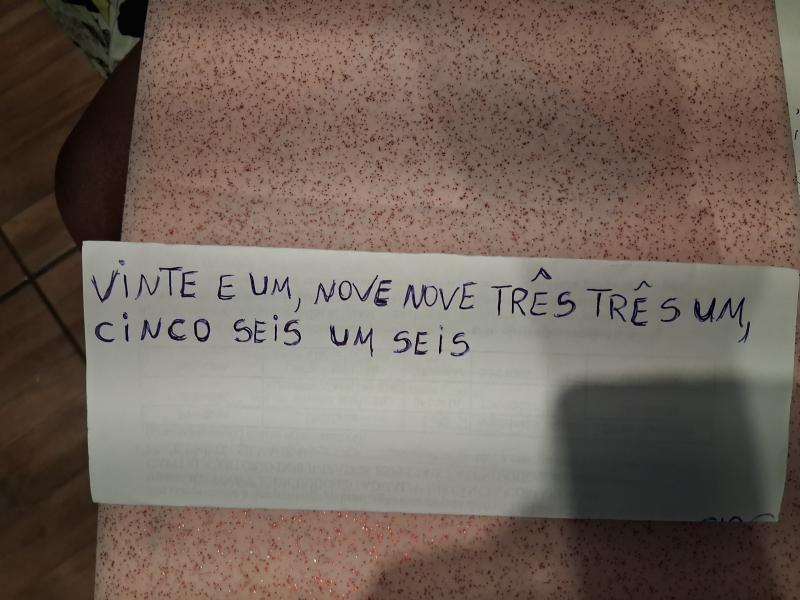 VINTE E UM, NOVE NOVE TRÊS TRÊS UM,
CINCO SEIS UM SEIS